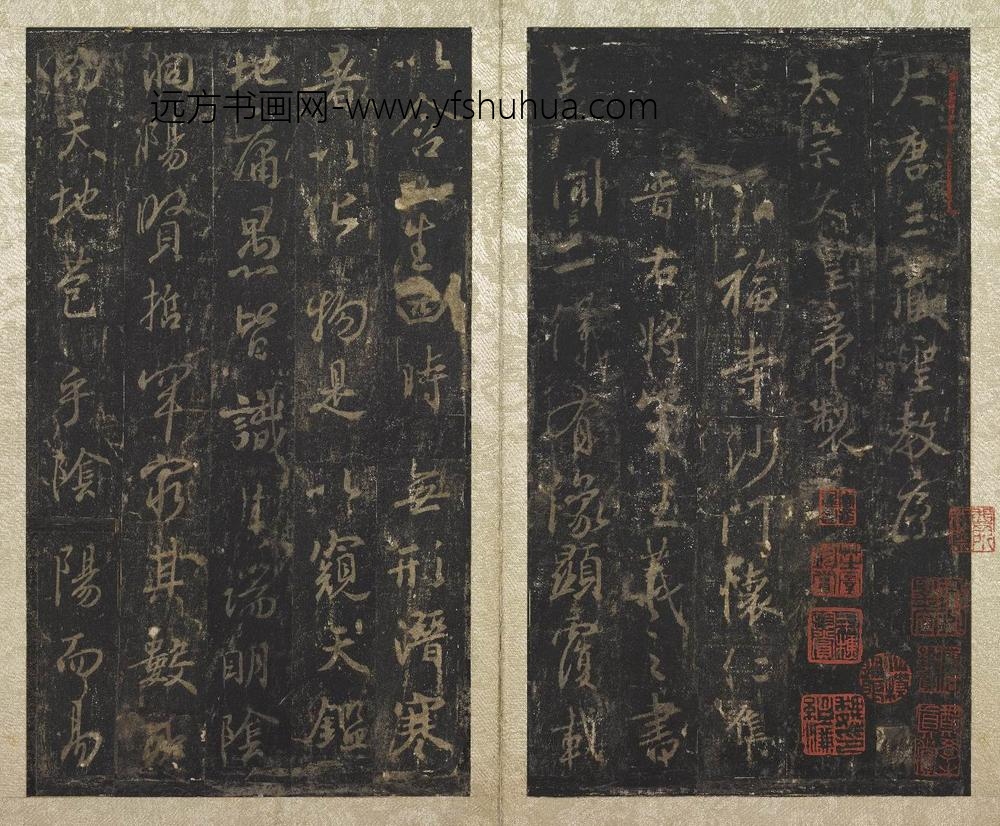 大唐三藏聖教序
太宗文皇帝製
弘福寺沙門懷仁集
晉右將軍王羲之書
蓋聞二儀有像顯覆載
以含生四時無形潛寒
暑以化物是以窺天鑑
地庸愚皆識其端明陰
洞陽賢哲罕窮其數然
而天地苞乎陰陽而易
远方书画网-www.yfshuhua.com